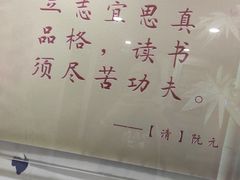 立志宜思真
品格，读书
须尽苦功夫。
——【清】阮元